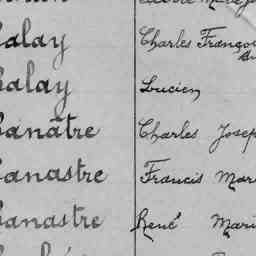 alay Charles Franço
alay Lucien
anâtre Charles Josep
anastre Francis Mar
anastre René Mari